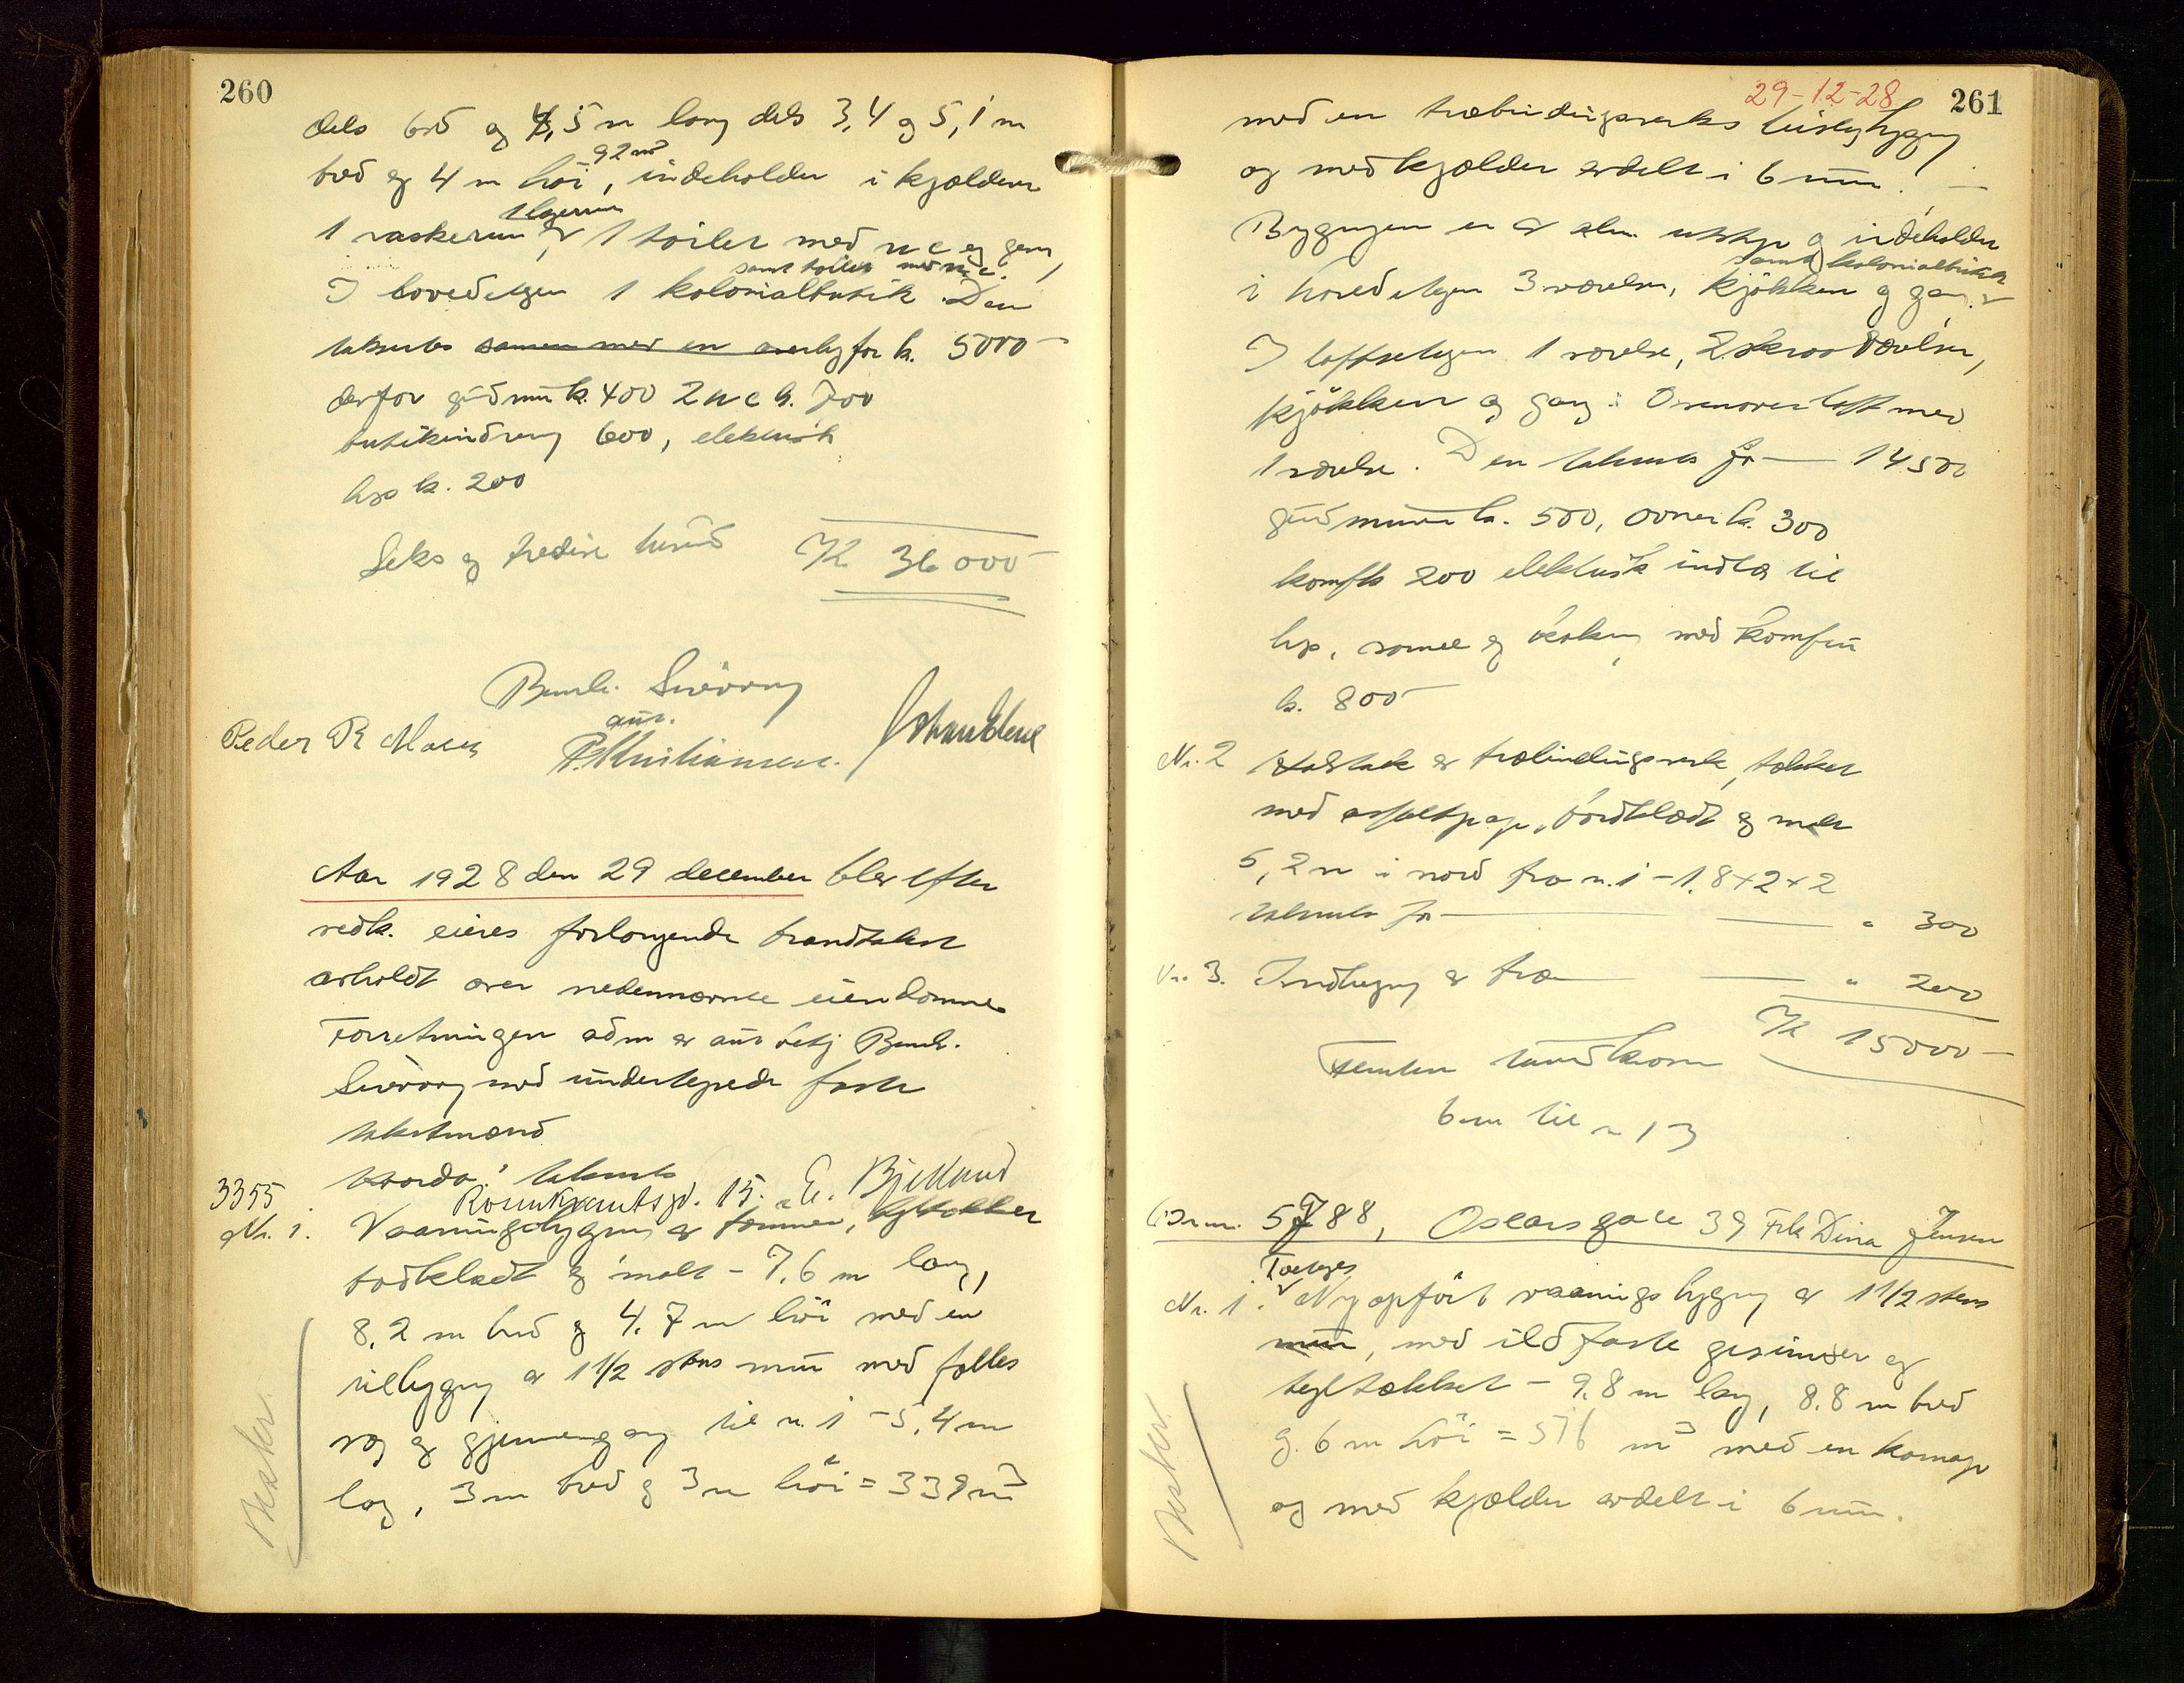 260
dels bred og 4,5 m lang dels 3,4 og 5,1 m
bred og 4 m høi, 92 m³ indeholder i kjælderen
1 vaskerum, 1 lagerrum og 1 toilet med w c og gang,
I hovedetagen 1 kolonialbutik samt toilet med w c. Den
takseres sammen med en overbyg for kr. 5000-
derfor grundmur k. 400 2 w c k. 700
butikindredning 600, elektrisk
lys k. 200
Seks og tredive tusind Kr 36 000-
Bernh. Sivøvang
aut.
Peder R Moen P. Kristiansen.
Aar 1928 den 29 december blev efter
vedk. eieres forlangende brandtakst
avholdt over nedennævnte eiendomme
Forretningen adm av aut betj Bernh.
med undertegnede faste
takstmænd
hvorda: takserets
3355 Rosenkrantsgt. 15. E. Bjelland
Nr. 1. Vaaningsbygning av tømmer, tegltækket
bordklædt og malt - 7,6 m lang,
8,2 m bred og 4,7 m høi med en
tilbygning av 1 1/2 stens mur med fælles
væg og gjennemgang til n. 1 - 5,4 m
lang, 3 m bred og 3 m høi = 339 m³
29-12-28 261
med en træbindingsverks bislagbygning
og med kjælder avdelt i 6 rum. -
Bygningen er av alm. utstyr og indeholder
i hovedetagen 3 værelser, kjøkken og gang samt kolonialbutik
I loftsetagen 1 værelse, 2 skraaværelser,
kjøkken og gang. Ovenover loft med
1 værelse. Den takseres for — 14 500
grundmuren k. 500, ovner k. 300
komf k 200 elektrisk indlæg til
lys, varme og kokning med komfur
k. 800-
Nr. 2 av træbindingsverk, tækket
med asfaltpap, bordklædt og malt
5,2 m i nord fra n. 1 - 1,8 + 2 + 2
takseres for — " 300
Nr. 3. Indhegning av træ — " 200
Kr 15000-
Femten tusind kroner
6 m til n 13
Br. nr. 5788, Oscarsgate 39 Frk Dina Jensen
Nr. 1. Toetages Nyopført vaaningsbygning av 1 1/2 stens
mur, med ildfaste gesimser og
tegltækket - 9,8 m lang, 8,8 m bred
og 6 m høi = 516 m³ med en karnap
og med kjælder avdelt i 6 rum.